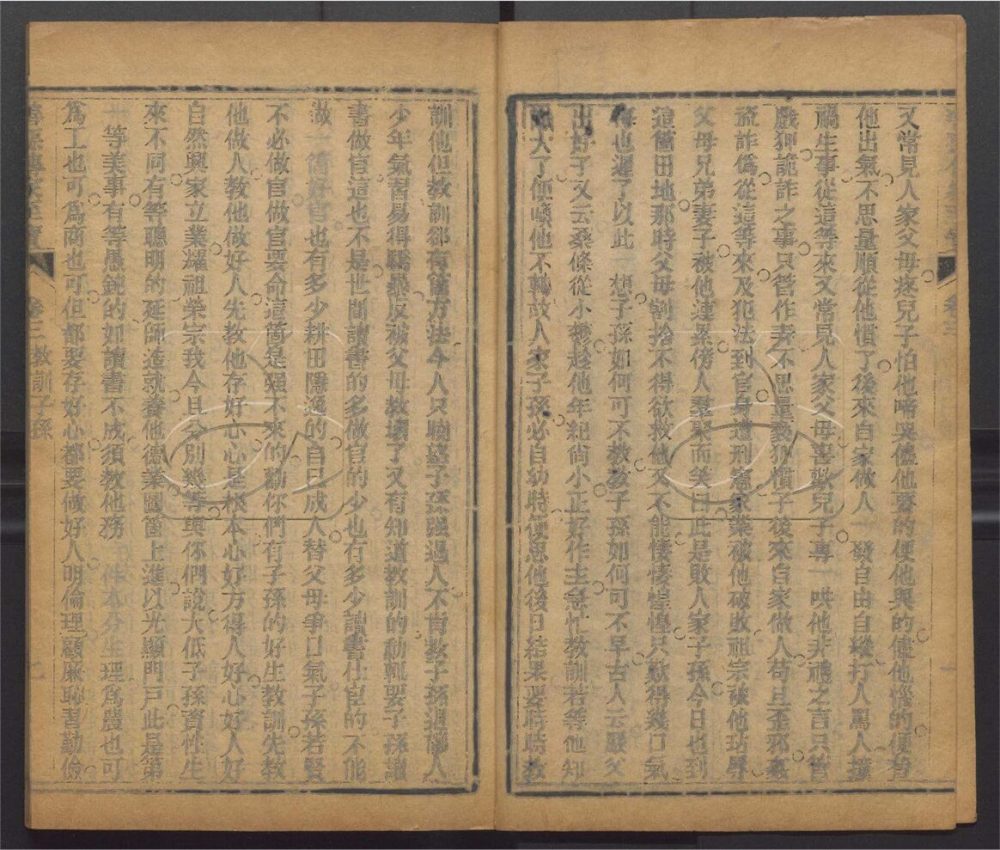 又常見人家父母疼兒子怕他啼哭儘他要的便他與的儘他惱的便
他出氣不思量順從他慣了後來自家做人一發自由自縱打人罵人
禍生事從這等來又常見人家父母喜歡兒子專一哄他非禮之言只管
戲狎詭詐之事只管作弄不思量褻狎慣了後來自家做人苟且歪邪姦
詐偽從這等來及犯法到官身遭刑憲家業被他破敗祖宗被他玷辱
父母兄弟妻子被他連累傍人羣聚而笑曰此是敗人家子孫今日也到
這箇田地那時父母割捨不得欲救他又不能悽悽惶惶只歎得幾口氣
悔也遲了以此一想子孫如何可不教教子孫如何可不早古人云嚴父
出好子又云桑條從小鬱趁他年紀尚小正好作主急忙教訓若等他知
大了便喚他不轉故人家子孫必自幼時便思他後日結果要時時教
訓他但教訓卻有箇方法今人只曉望子孫強過人不肯教子孫退讓人
少年氣習易得驕暴反被父母教壞了又有知道教訓的動輒要子孫讀
書做官這也不是世間讀書的多做官的少也有多少讀書仕宦的不能
做一箇好官也有多少耕田隱逸的自已成人替父母爭口氣子孫若賢
不必做官做官要命這箇是強不來的勸你們有子孫的好生教訓先教
他做人教他做好人先教他存好心心是根本心好方得人好心好人好
自然興家立業耀祖榮宗我今且分別幾等與你們說大低子孫資性生
來不同有等聰明的延師造就養他德業圖箇上進以光顯門戶此是第
一等美事有等愚鈍的如讀書不成須教他務一件本分生理為農也可
為工也可為商也可但都要存好心都要做好人明倫理顧廉恥習勤儉
卷三 教訓子孫
二